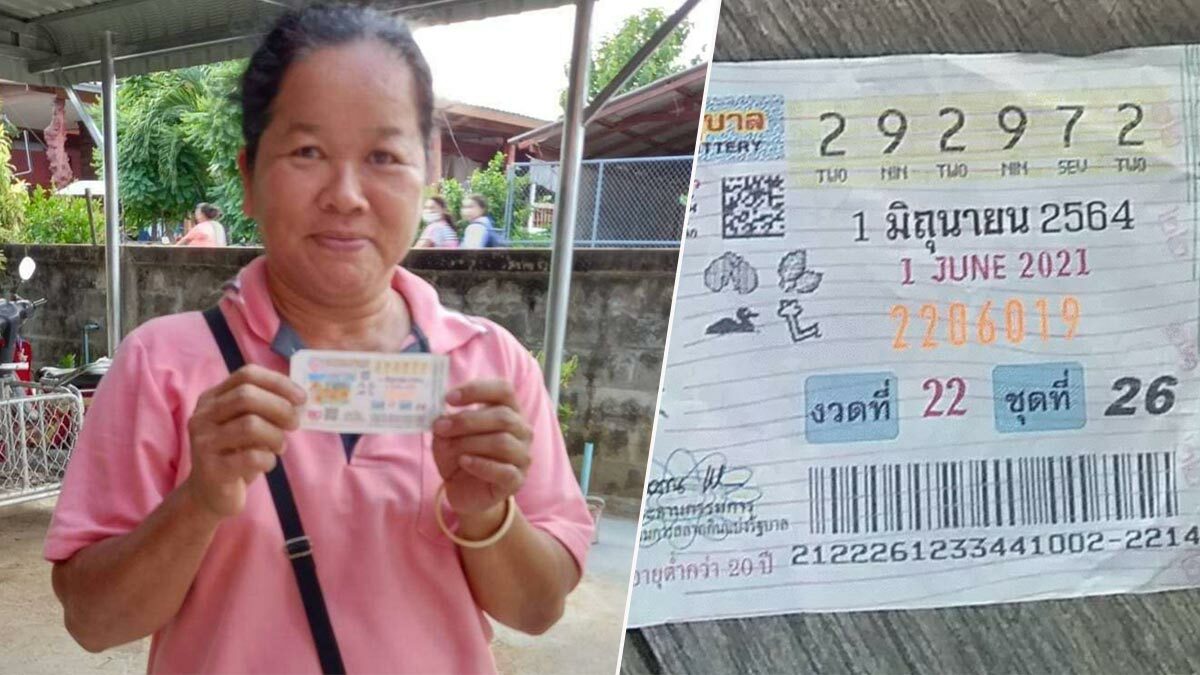 บาล
TTERY
2 9 2 9 7 2
TWO NIN TWO NIN SEV TWO
1 มิถุนายน 2564
1 JUNE 2021
2206019
งวดที่ 22 ชุดที่ 26
ประธานกรรมการ
2122261233441002-2214
อายุต่ำกว่า 20 ปี